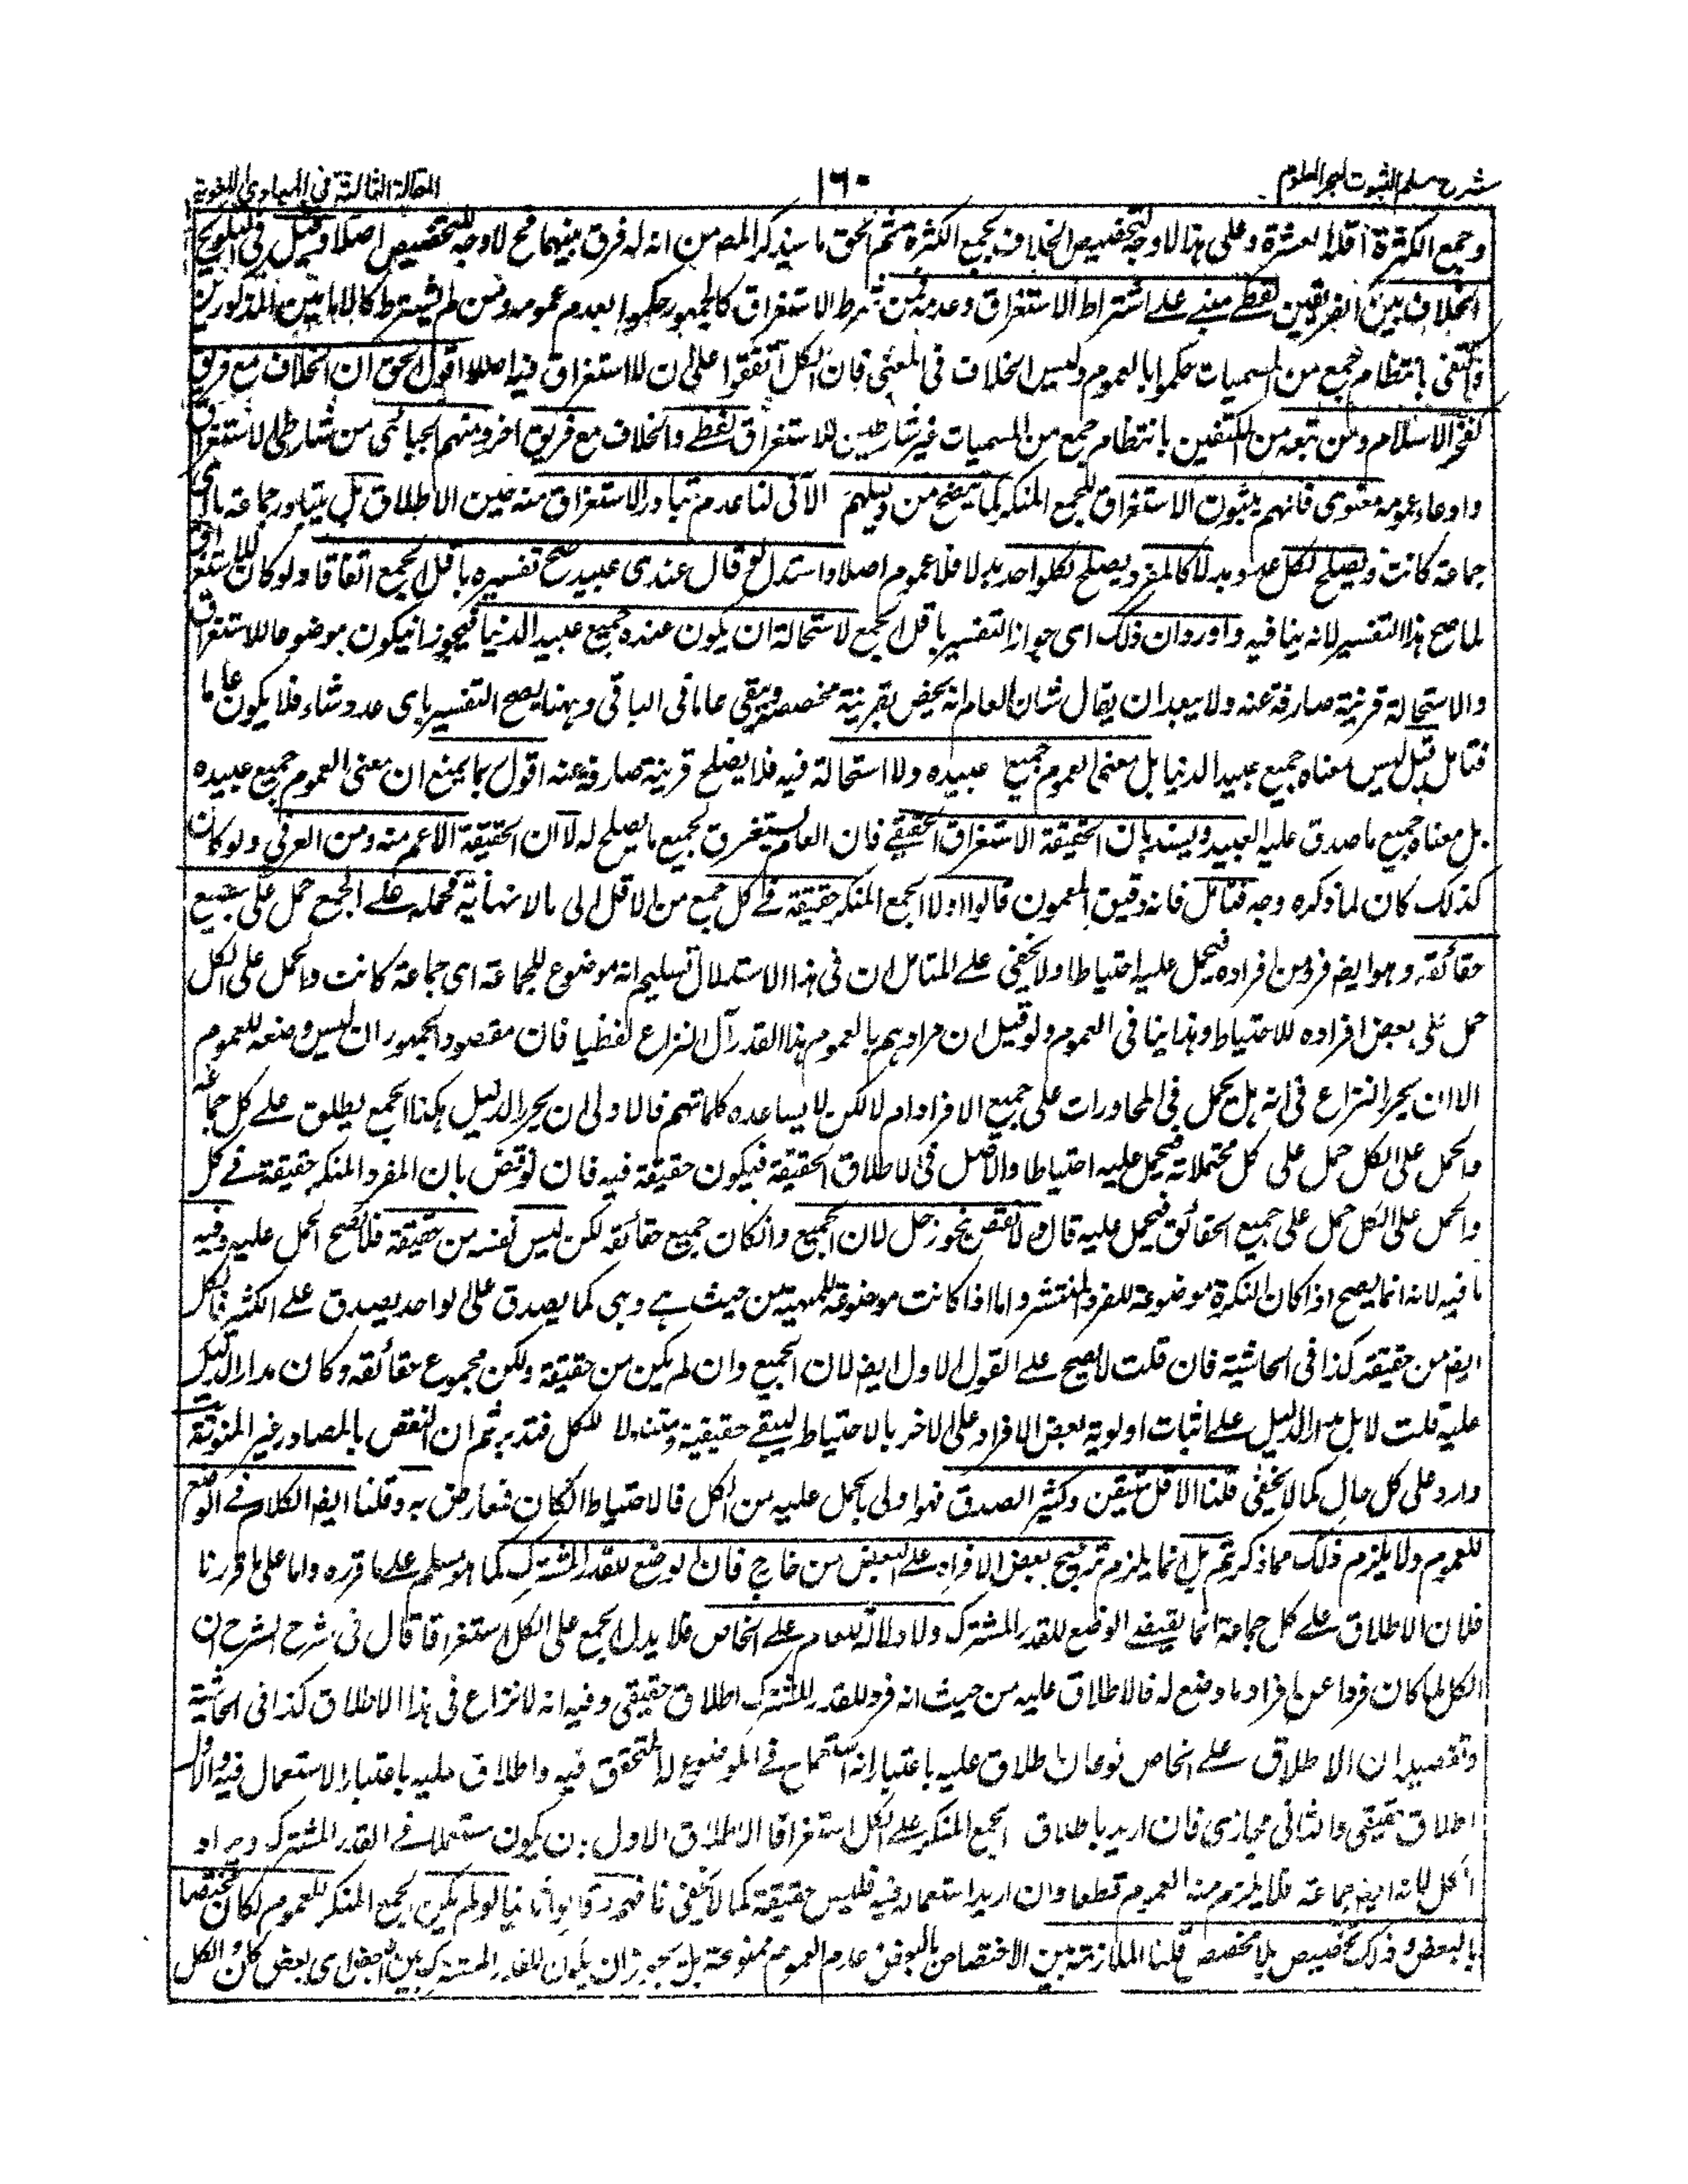 شرح مسلم الثبوت لبحر العلوم
١٦٠
المقالة الثالثة في المبادي اللغوية
وجمع الكثرة اقله العشرة وعلى هذا لا وجه لتخصيص الخلاف بجمع الكثرة ثم الحق ما سيذكر المصـ من انه لا فرق بينهما فح لا وجه للتخصيص اصلا وقيل في التلويح
الخلاف بين الفريقين لفظے مبنے علے اشتراط الاستغراق وعدمه فمن شرط الاستغراق كالجمهور حكموا بعدم عمومه ومن لم يشترط كالامامين المذكورين
واكتفى بانتظام جمع من المسميات حكموا بالعموم وليس الخلاف في المعنى فان الكل اتفقوا على ان لا استغراق فيه اصلا اقول الحق ان الخلاف مع فريق
كفخر الاسلام ومن تبعه من المكتفين بانتظام جمع من المسميات غير شارطين للاستغراق لفظے والخلاف مع فريق اخر ومنهم الجبائي من شارطي الاستغراق
وادعاء عمومه معنوى فانهم مثبتون الاستغراق للجمع المنكر كما يتضح من دليلهم الآتى لنا عدم تبادر الاستغراق منه حين الاطلاق بل يتبادر جماعة ما اى
جماعة كانت ويصلح لكل عدد بدلا كالمفرد يصلح لكل واحد بدلا فلا عموم اصلا واستدل لو قال عندى عبيد صح تفسيره باقل الجمع اتفاقا ولو كان للاستغراق
لما صح هذا التفسير لانه ينافيه واورد ان ذلك اى جواز التفسير باقل الجمع لاستحالة ان يكون عنده جميع عبيد الدنيا فيجوز ان يكون موضوعا للاستغراق
والاستحالة قرينة صارفة عنه ولا يبعد ان يقال شان العام انه يخص بقرينة مخصصة ويبقى عاما فى الباقى وههنا يصح التفسير باى عدد شاء فلا يكون عاما
فتامل قيل ليس معناه جميع عبيد الدنيا بل معنى العموم جميع عبيده ولا استحالة فيه فلا يصلح قرينة صارفة عنه اقول ربما يمنع ان معنى العموم جميع عبيده
بل معناه جميع ما صدق عليه العبيد ويسند بان الحقيقة الاستغراق الحقيقے فان العام يستغرق لجميع ما يصلح له لا ان الحقيقة الاعم منه ومن العرفى ولو كان
كذلك كان لما ذكره وجه فتامل فانه دقيق المضمون قالوا اولا الجمع المنكر حقيقة فے كل جمع من الاقل الى ما لا نهاية له فحمله علے الجميع حمل على جميع
حقائقه وهو ايضـ فرد من افراده فيحمل عليه احتياطا ولا يخفى علے المتامل ان فى هذا الاستدلال تسليم انه موضوع للجماعة اى جماعة كانت والحمل على الكل
حمل على بعض افراده للاحتياط وهذا ينافى العموم ولو قيل ان مرادهم بالعموم هذا القدر آل النزاع لفظيا فان مقصود الجمهور ان ليس وضعه للعموم
الا ان يحرر النزاع فى انه هل يحمل فى المحاورات على جميع الافراد ام لا لكن لا يساعده كلماتهم فالاولى ان يحرر الدليل هكذا الجمع يطلق علے كل جماعة
والحمل على الكل حمل على كل محتملاته فيحمل عليه احتياطا والاصل فى الاطلاق الحقيقة فيكون حقيقة فيه فان نوقض بان المفرد المنكر حقيقة فے كل
والحمل على الكل حمل على جميع الحقائق فيحمل عليه قالوا لا نقض بنحو رجل لان الجميع وانكان جميع حقائقه لكن ليس نفسه من حقيقة فلا يصح الحمل عليه وفيه
ما فيه لانه انما يصح اذا كان النكرة موضوعة للفرد المنتشر واما اذا كانت موضوعة للمهية من حيث هے وهى كما يصدق على الواحد يصدق علے الكثير فالكل
ايضـ من حقيقة كذا فى الحاشية فان قلت لا يصح علے القول الاول ايضـ لان الجميع وان لم يكن من حقيقة ولكن مجموع حقائقه وكان مدار الدليل
عليه قلت لا بل مدار الدليل علے اثبات اولوية بعض الافراد على الاخر بالاحتياط ليبقے حقيقية ومتناولا للكل فتدبر ثم ان النقض بالمصادر غير المنونة
وارد على كل حال كما لا يخفى قلنا الاقل متيقن وكثير الصدق فهو اولى بالحمل عليه من الكل فالاحتياط انكان فمعارض به وقلنا ايضـ الكلام فے الوضع
للعموم ولا يلزم ذلك مما ذكرتم بل انما يلزم ترجيح بعض الافراد علے البعض من خارج فان الوضع للقدر المشترك كما هو مسلم على ما قرره واما على ما قررنا
فلان الاطلاق علے كل جماعة انما يقتضے الوضع للقدر المشترك ولا دلالة للعام علے الخاص فلا يدل الجمع على الكل استغراقا قال فى شرح الشرح ان
الكل لما كان فردا من افراد ما وضع له فالاطلاق عليه من حيث انه فرد للقدر المشترك اطلاق حقيقى وفيه انه لا نزاع فى هذا الاطلاق كذا فى الحاشية
وتفصيله ان الاطلاق علے الخاص نوعان اطلاق عليه باعتبار انه استعمال فے الموضوع له المتحقق فيه واطلاق عليه باعتبار الاستعمال فيه والاول
اطلاق حقيقى والثانى مجازى فان اريد باطلاق الجمع المنكر علے الكل استغراقا الاطلاق الاول بان يكون مستعملا فے القدر المشترك ويراد
الكل لانه ايضـ جماعة فلا يلزم منه العموم قطعا وان اريد استعماله فيه فليس حقيقة كما لا يخفى فافهم وقالوا ثانيا لو لم يكن الجمع المنكر للعموم لكان مختصا
بالبعض وذلك تخصيص بلا مخصص قلنا الملازمة بين الاختصاص بالبعض وعدم العموم ممنوعة بل يجوز ان يكون للقدر المشترك بين البعض اى بعض كان والكل